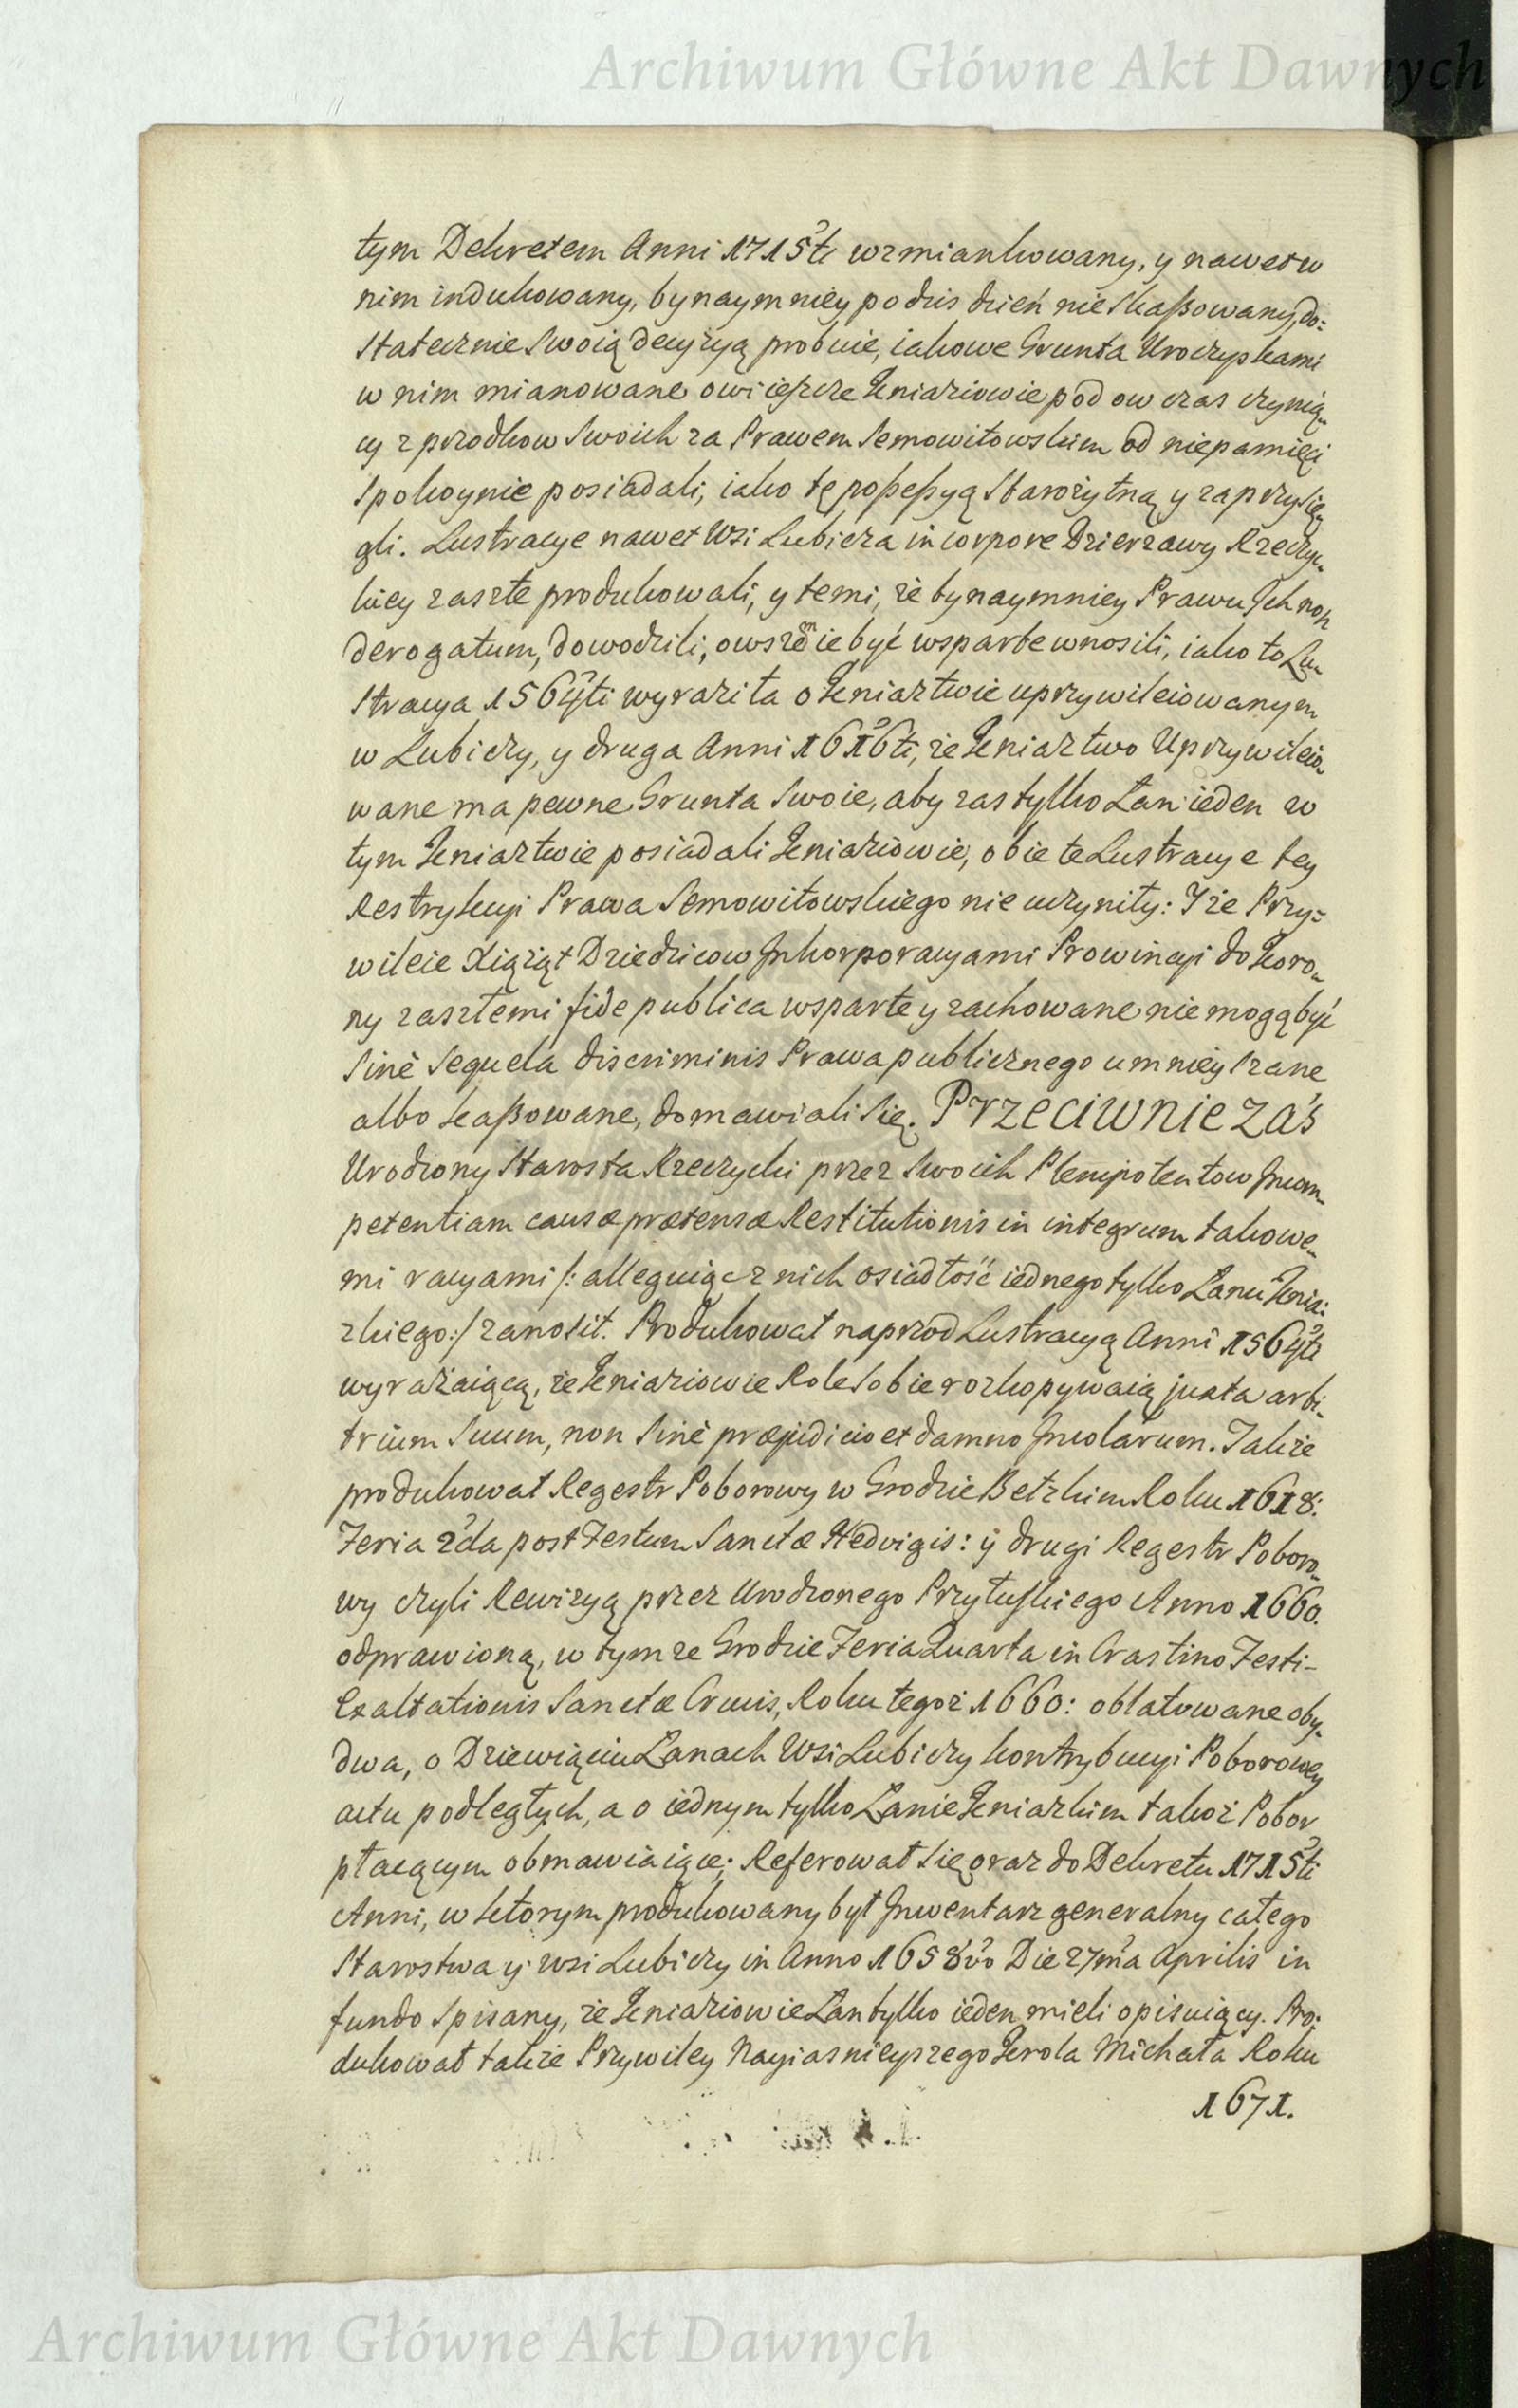 Archiwum Główne Akt Dawnych
tym Dekretem Anni 1715ti wzmiankowany, y nawet w
nim indukowany, bynaymniey po dziś dzień nie skassowany, do=
statecznie swoią decyzyą probuie, iakowe Grunta Uroczyskami
w nim mianowane owi ieszcze Kniaziowie pod ow czas czynią=
cy z przodkow swoich za Prawem Semowitowskim od niepamięci
spokoynie posiadali, iako tę possessyą starożytną y zaprzysię=
gli. Lustracye nawet Wsi Lubicza in corpore Dzierzawy Rzeczyc=
kiey zaszłe produkowali, y temi, że bynaymniey Prawu Ich non
derogatum, dowodzili, owszem ie być wsparte wnosili, iako to Lu=
stracya 1564ti wyraziła o Kniaztwie uprzywileiowanym
w Lubiczy, y druga Anni 1616ti, że Kniaztwo Uprzywileio=
wane ma pewne Grunta swoie, aby zas tylko Łan ieden w
tym Kniaztwie posiadali Kniaziowie, obie te Lustracye tey
Restrykcyi Prawa Semowitowskiego nie uczyniły: I że Przy=
wileie Xiążąt Dziedzicow Inkorporacyami Prowincyi do Koro=
ny zaszłemi fide publica wsparte y zachowane nie mogą być
sinè sequela discriminis Prawa publicznego umnieyszane
albo skassowane, domawiali się. Przeciwnie zaś
Urodzony Starosta Rzeczycki przez swoich Plenipotentow Incom=
petentiam causæ prætensæ Restitutionis in integrum takowe=
mi racyami /: alleguiąc z nich osiadłość iednego tylko Łanu Knia=
zkiego :/ zanosił. Produkował naprzod Lustracyą Anni 1564ti
wyrażaiącą, że Kniaziowie Role sobie rozkopywaią juxta arbi=
trium suum, non sinè præjudicio et damno Incolarum. Także
produkował Regestr Poborowy w Grodzie Bełzkim Roku 1618:
Feria 2da post Festum Sanctæ Hedvigis: y drugi Regestr Poboro=
wy czyli Rewizyą przez Urodzonego Przyłuskiego Anno 1660.
odprawioną, w tymże Grodzie Feria Quarta in Crastino Festi-
Exaltationis Sanctæ Crucis, Roku tegoż 1660: oblatowane oby=
dwa, o Dziewiąciu Łanach Wsi Lubiczy kontrybucyi Poborowey
actu podległych, a o iednym tylko Łanie Kniazkim takoż Pobor
płacącym obmawiaiące; Referował się oraz do Dekretu 1715ti
Anni, w ktorym produkowany był Inwentarz generalny całego
Starostwa y wsi Lubiczy in Anno 1658vo Die 27ma Aprilis in
fundo spisany, że Kniaziowie Łan tylko ieden mieli opisuiący. Pro=
dukował także Przywiley Nayiasnieyszego Krola Michała Roku
1671.
Archiwum Główne Akt Dawnych